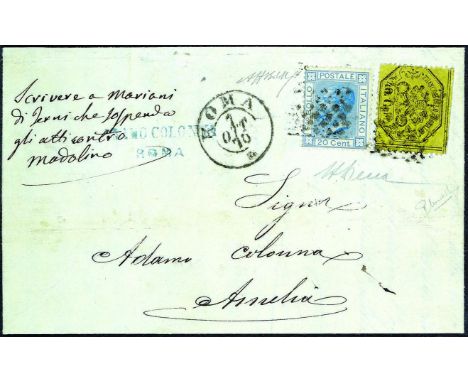 Scrivere a Mariani
di Terni che sospenda
gli atti contro
Madolino
ANO COLONNA
ROMA
ROMA
7
OTT
70
POSTALE
ITALIANO
20 Cent.
Signor
Adamo Colonna
Amelia